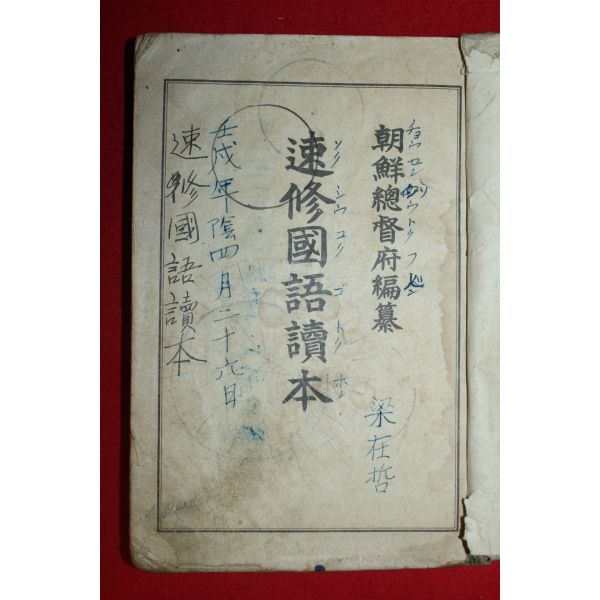 朝鮮總督府編纂
チョウセン
トクフ
梁在哲
速修國語讀本
ソクシウコクゴトクホン
壬戌年陰四月二十六日
速修國語讀本